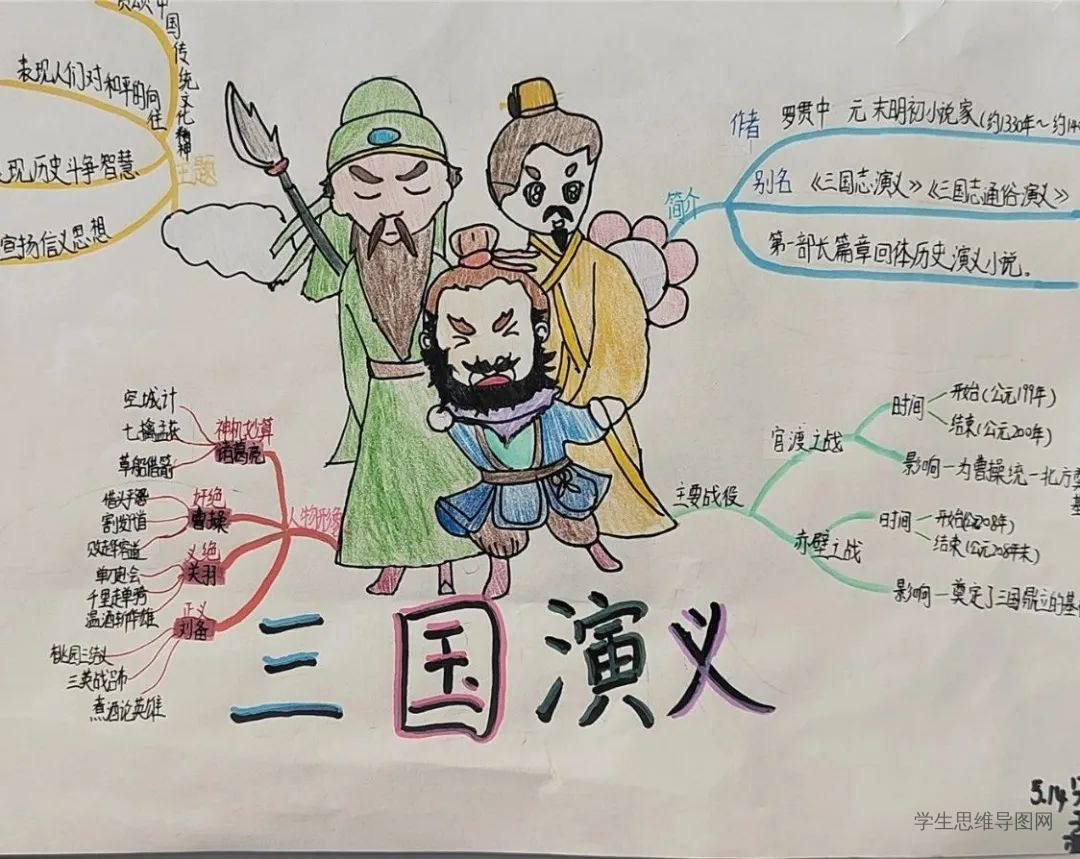 国传统文化精神
表现人们对和平的向往
现历史斗争智慧
宣扬信义思想
主题
作者 罗贯中 元末明初小说家(约1330年～约14
别名 《三国志演义》《三国志通俗演义》
第一部长篇章回体历史演义小说。
简介
空城计
七擒孟获
草船借箭
神机妙算
诸葛亮
割发代首
奸绝
曹操
单刀会
千里走单骑
温酒斩华雄
义绝
关羽
桃园三结义
三英战吕布
煮酒论英雄
正义
刘备
人物形象
主要战役
官渡之战
时间
开始(公元199年)
结束(公元200年)
影响一为曹操统一北方奠
基
赤壁之战
时间
开始(公元208年)
结束(公元208年末)
影响一奠定了三国鼎立的基
三国演义
5.14
学生思维导图网